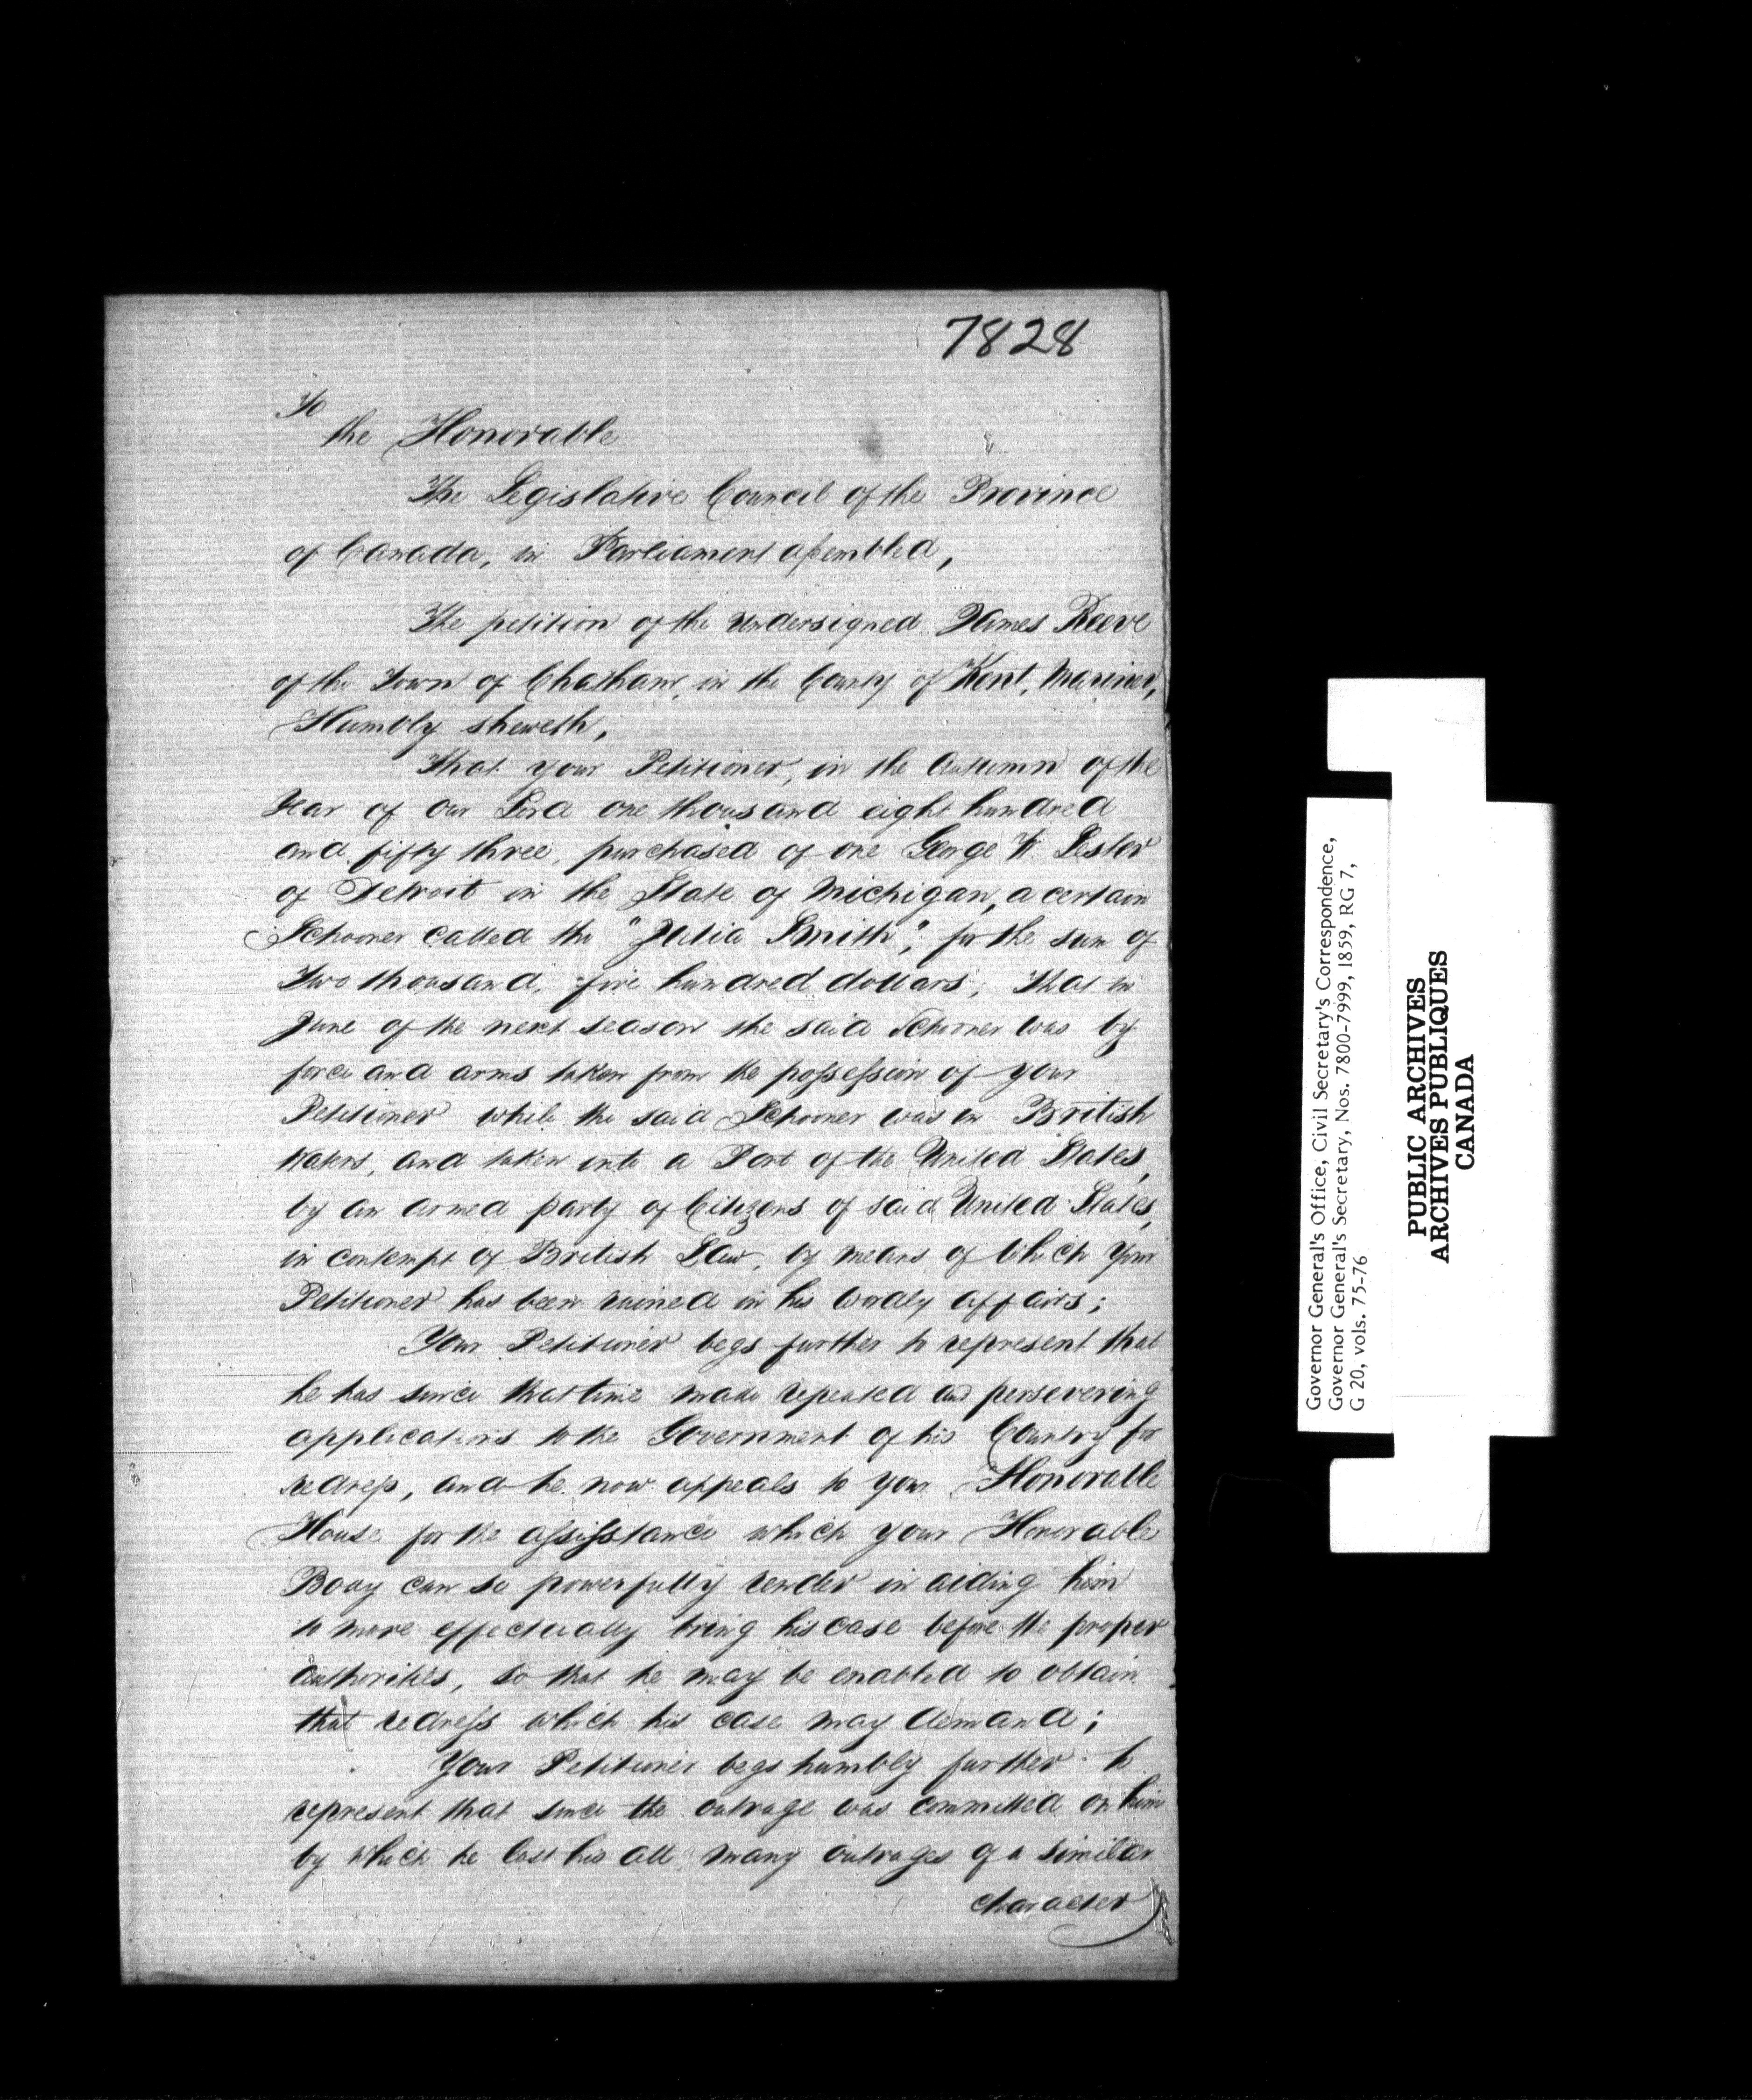 7828
To
the Honorable
The Legislative Council of the Province
of Canada, in Parliament assembled,
The petition of the undersigned James Reeve
of the Town of Chatham, in the County of Kent, Mariner,
Humbly sheweth,
That your Petitioner, in the Autumn of the
Year of our Lord one thousand eight hundred
and fifty three, purchased of one George W. Lester
of Detroit in the State of Michigan, a certain
Schooner called the "Julia Smith", for the sum of
Two thousand, five hundred dollars; That in
June of the next season the said Schooner was by
force and arms taken from the possession of your
Petitioner while the said Schooner was in British
Waters, and taken into a Port of the United States,
by an armed party of Citizens of said United States,
in contempt of British Law, by means of which your
Petitioner has been ruined in his wordly affairs;
Your Petitioner begs further to represent that
he has since that time made repeated and persevering
applications to the Government of his Country for
redress, and he now appeals to your Honorable
House for the assisstance which your Honorable
Body can so powerfully render in aiding him
to more effectually bring his case before the proper
authorities, so that he may be enabled to obtain
that redress which his case may demand;
Your Petitioner begs humbly further to
represent that since the outrage was committed on him
by which he lost his all, many outrages of a similar
character
Governor General's Office, Civil Secretary's Correspondence,
Governor General's Secretary, Nos. 7800-7999, 1859, RG 7,
G 20, vols. 75-76
PUBLIC ARCHIVES
ARCHIVES PUBLIQUES
CANADA